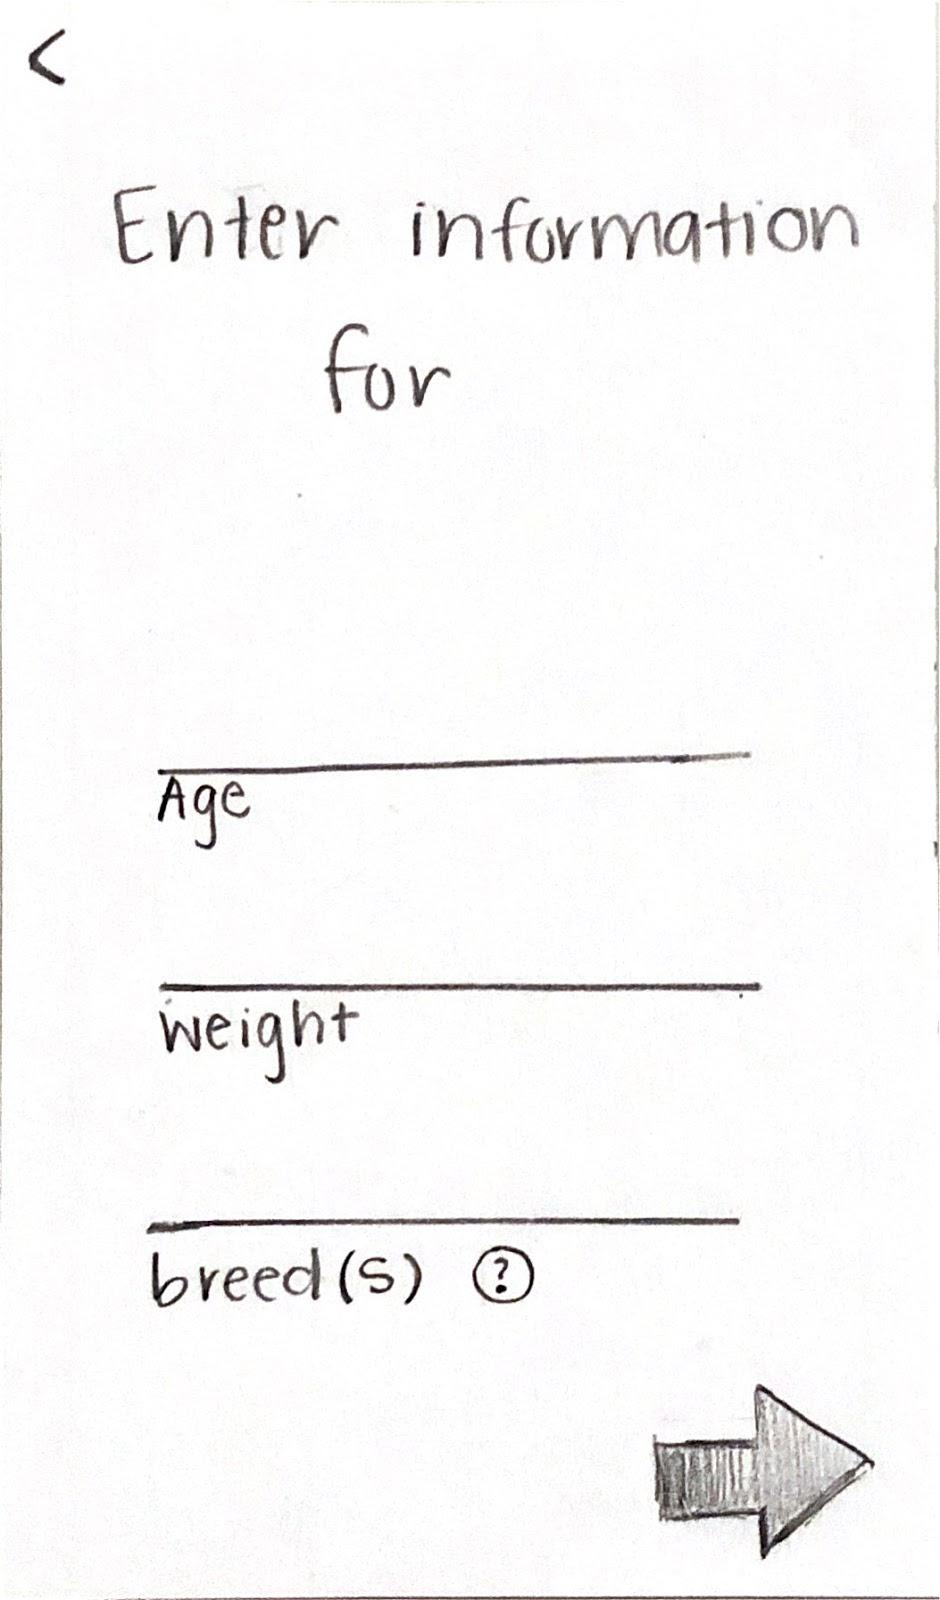 <
Enter information
for
Age
weight
breed(s) ?